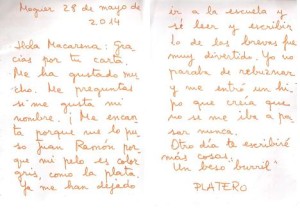 Moguer 28 de mayo de
2.014
Hola Macarena: Gra
cias por tu carta.
Me ha gustado mu
cho. Me preguntas
si me gusta mi
nombre. ¡Me encan
ta porque me lo pu
so Juan Ramón por
que mi pelo es color
gris, como la plata.
Ya me han dejado
ir a la escuela y
sé leer y escribir
lo de las brevas fue
muy divertido. Yo no
paraba de rebuznar
y me entró un hi
po que creía que
no se me iba a pa
sar nunca.
Otro día te escribiré
más cosas.
Un beso burril"
PLATERO